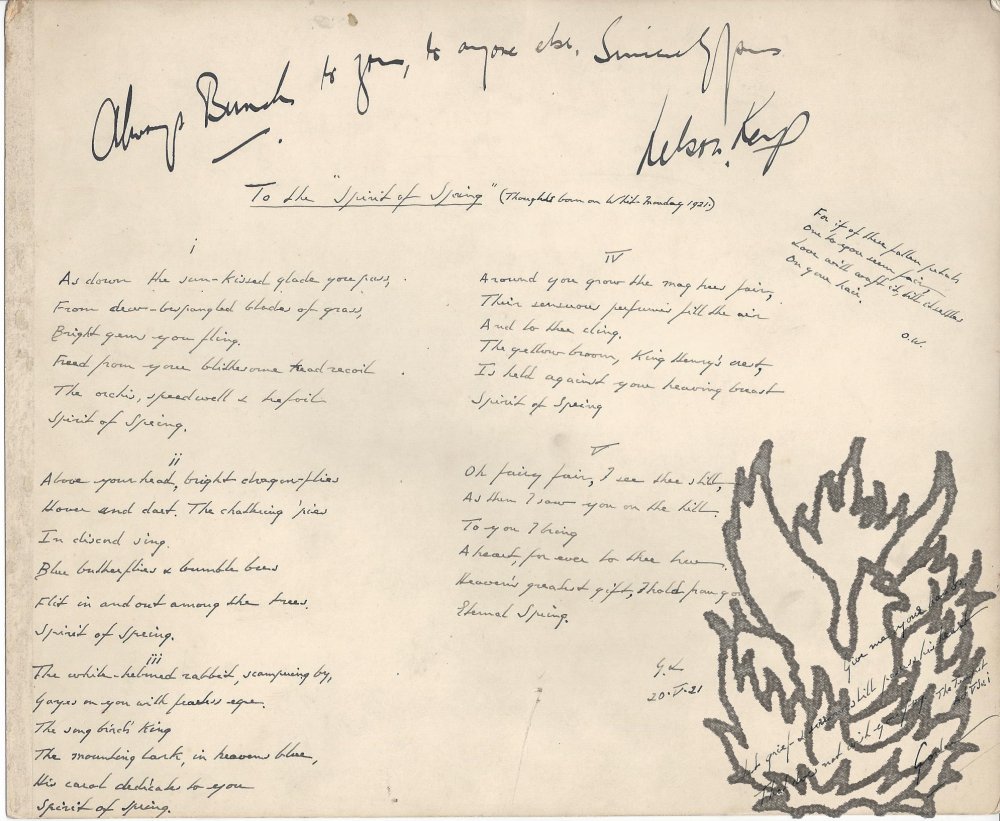 Always Bunch to you, to anyone else, Sincerely yours
Nelson Keys
To the "Spirit of Spring" (Thoughts born on Whit-Monday 1921.)
For if of these fallen petals
One to you seem fair,
Love will waft it, till it settles
On your hair.
O.W.
i
As down the sun-kissed glade you pass,
From dew-bespangled blades of grass,
Bright gems you fling.
Freed from your blithesome tread recoil
The orchis, speedwell & trefoil
Spirit of Spring.
ii
Above your head, bright dragon-flies
Hover and dart. The chattering 'pies
In discord sing.
Blue butterflies & bumble bees
Flit in and out among the trees.
Spirit of Spring.
iii
The white-helmed rabbit, scampering by,
Gazes on you with fearless eye.
The song birds' King
The mounting lark, in heavens blue,
His carol dedicates to you
Spirit of Spring.
IV
Around you grow the may trees fair,
Their sensuous perfumes fill the air
And to thee cling.
The yellow broom, King Henry's crest,
Is held against your heaving breast
Spirit of Spring
V
Oh fairy fair, I see thee still,
As then I saw you on the hill.
To you I bring
A heart, for ever to thee true.
Heaven's greatest gift, I hold from you
Eternal Spring.
G.K
20-V-21
Give me your hands,
Let grief & sorrow still embrace his heart
That doth not wish you joy
The Tempest